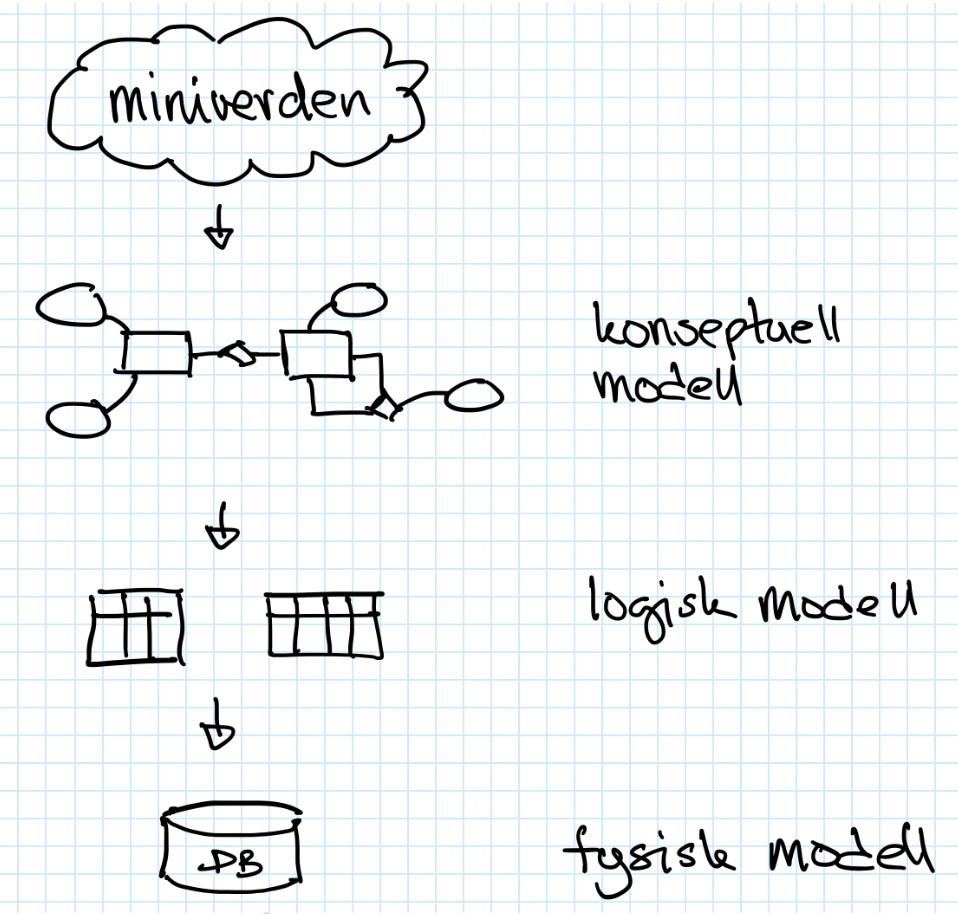 miniverden
konseptuell
modell
logisk modell
DB
fysisk modell